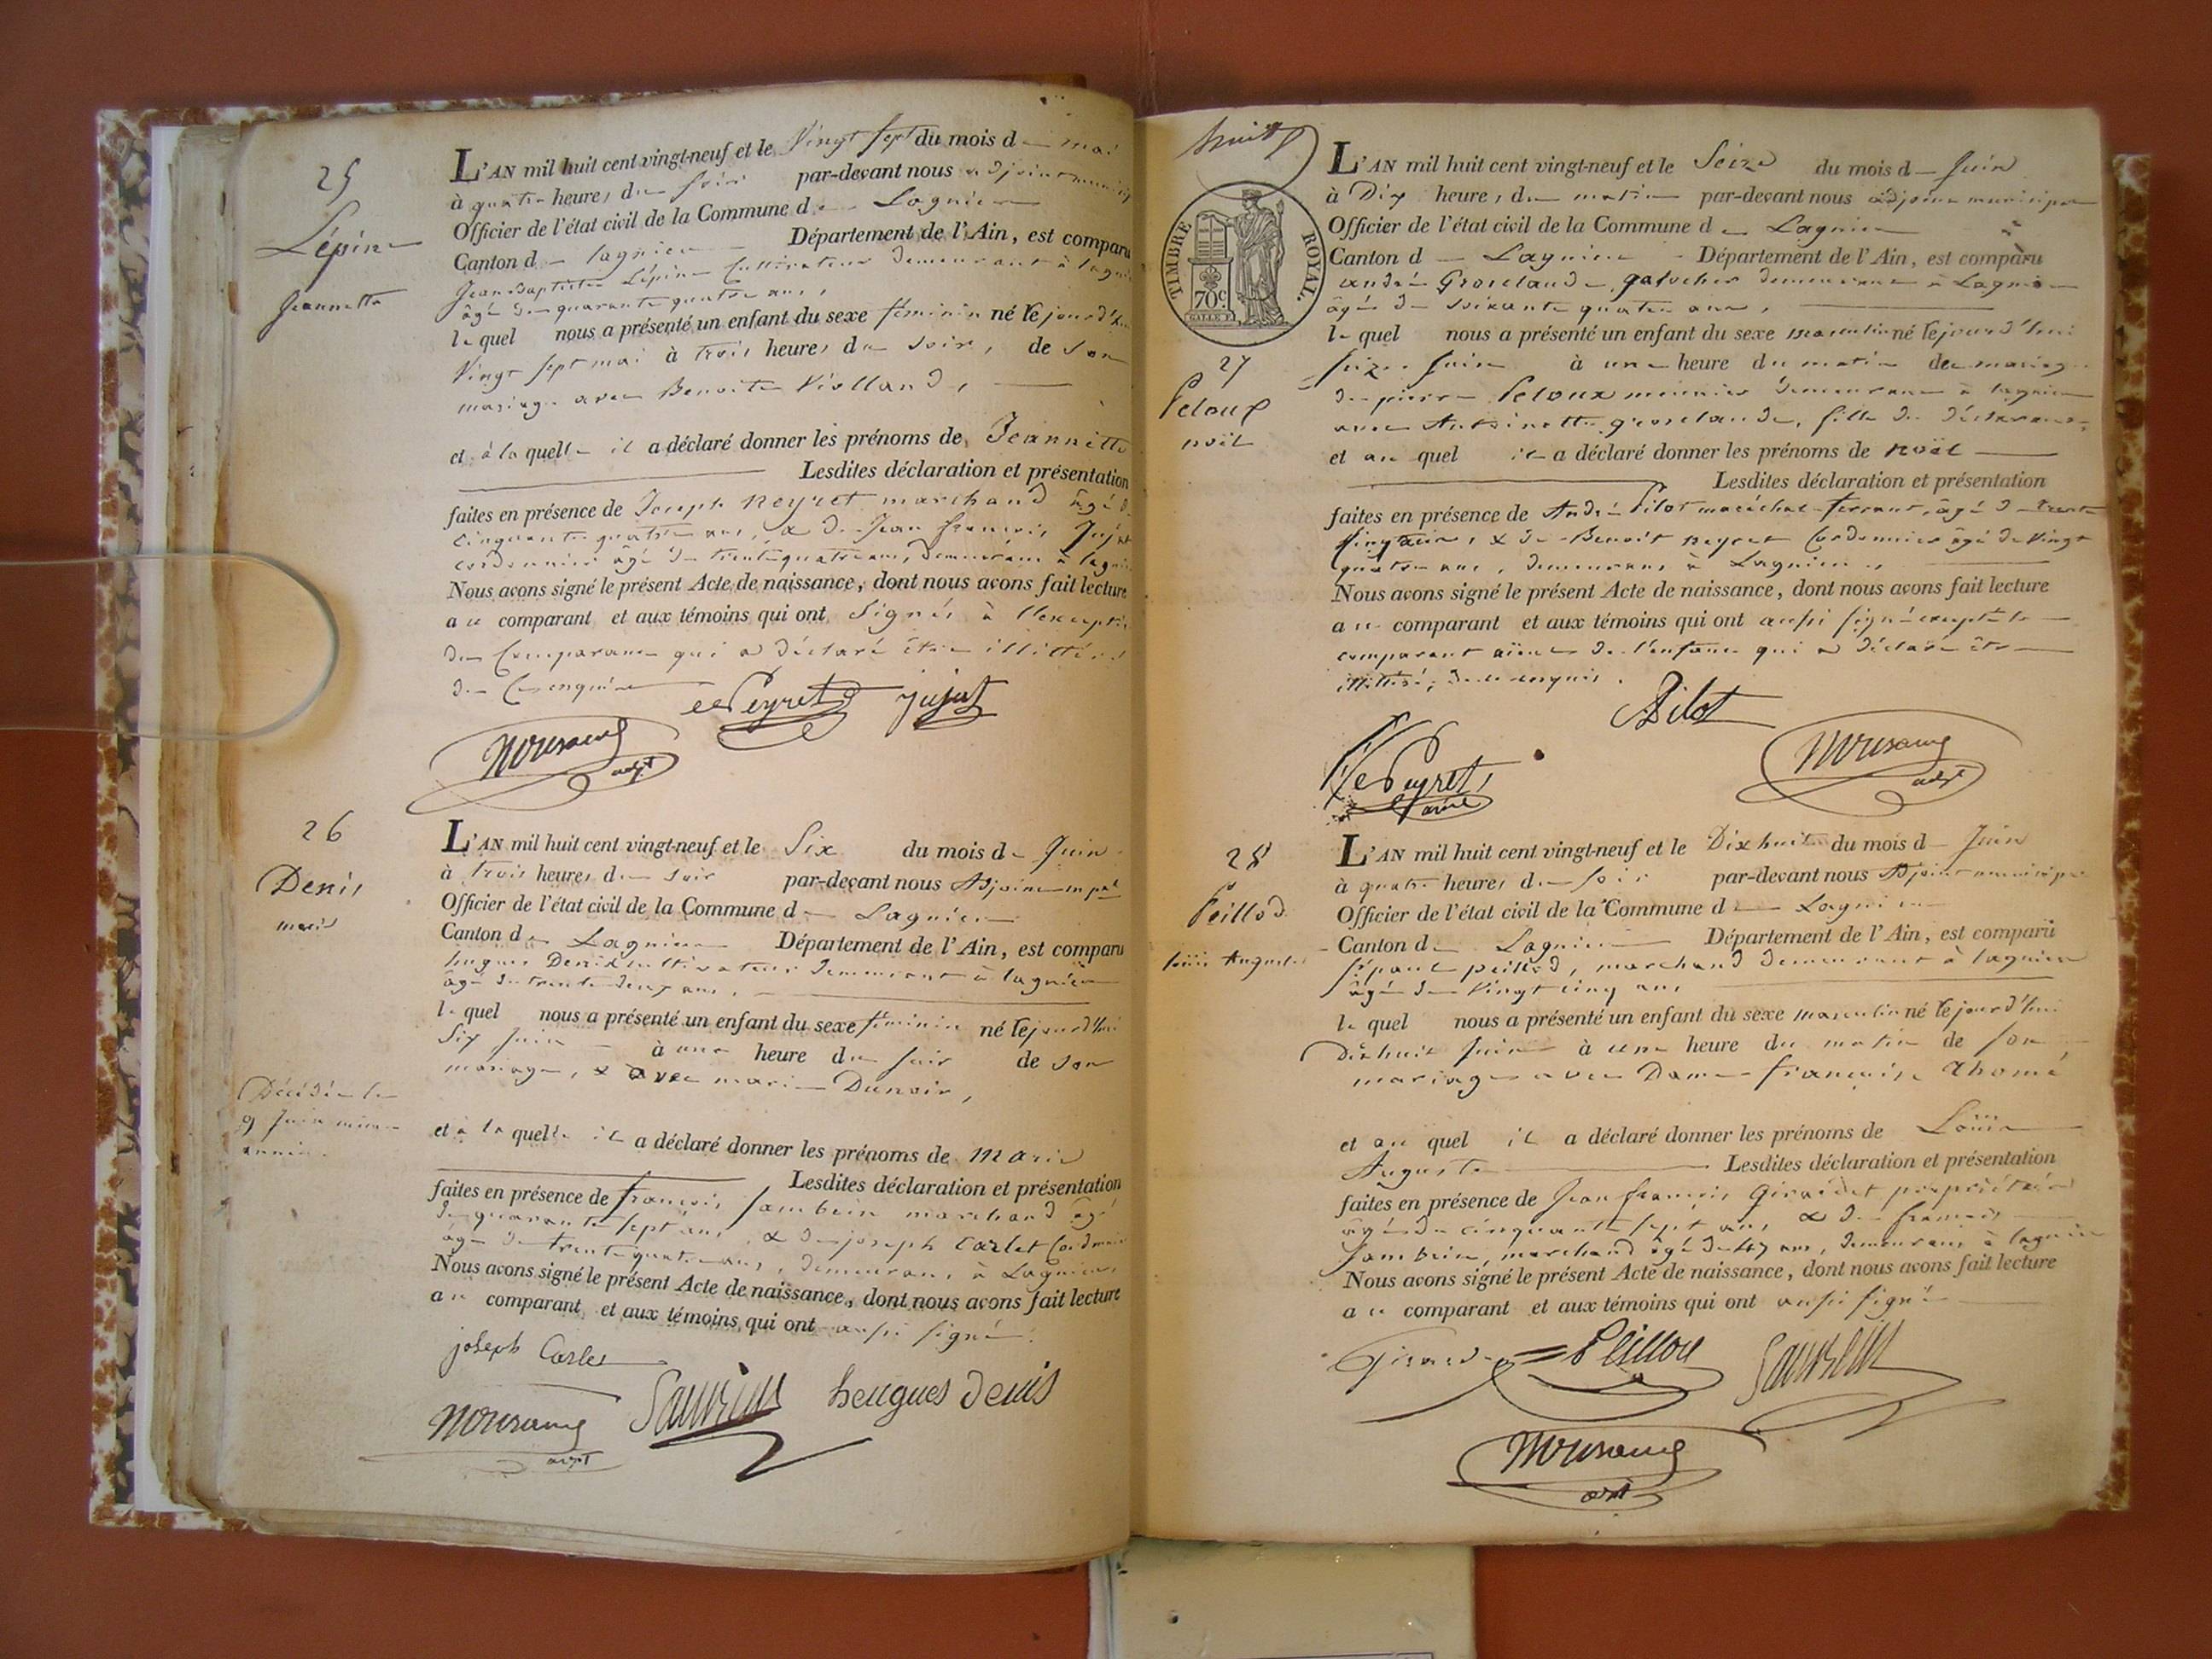 25
Lépine
Jeannette
L'AN mil huit cent vingt-neuf et le Vingt sept du mois de mai
à quatre heures du soir par-devant nous adjoint
Officier de l'état civil de la Commune de Lagnieu
Canton de lagnieu Département de l'Ain, est comparu
Jean Baptiste Lépine Cultivateur demeurant à lagnieu
âgé de quarante quatre ans,
lequel nous a présenté un enfant du sexe féminin né cejourd'hui
Vingt sept mai à trois heures du soir, de son
mariage avec Benoite Violland,
et à laquelle il a déclaré donner les prénoms de Jeannette
Lesdites déclaration et présentation
faites en présence de Joseph Neyret marchand âgé de
cinquante quatre ans, & de Jean françois Jujat
cordonnier âgé de trente quatre ans, demeurans à lagnieu
Nous avons signé le présent Acte de naissance, dont nous avons fait lecture
au comparant et aux témoins qui ont Signés à l'exception
du Comparant qui a déclaré être illittéré
de ce enquis
Peyret Jujat
adjt
26
Denis
marie
Décédée le
9 Juin même
année.
L'AN mil huit cent vingt-neuf et le Six du mois de Juin
à trois heures du soir par-devant nous Adjoint mpal
Officier de l'état civil de la Commune de Lagnieu
Canton de Lagnieu Département de l'Ain, est comparu
hugues Denis cultivateur demeurant à lagnieu
âgé de trente deux ans,
lequel nous a présenté un enfant du sexe féminin né cejourd'hui
Six juin à une heure du soir de son
mariage, & avec marie Dunoir,
et à laquelle il a déclaré donner les prénoms de Marie
Lesdites déclaration et présentation
faites en présence de françois Jambein marchand âgé
de quarante sept ans & de joseph Carlet Cordonnier
âgé de trente quatre ans, demeurans à Lagnieu,
Nous avons signé le présent Acte de naissance, dont nous avons fait lecture
au comparant et aux témoins qui ont aussi signé.
joseph Carlet
heugues denis
adjt
huit
TIMBRE ROYAL.
70c
27
Peloux
noël
L'AN mil huit cent vingt-neuf et le Seize du mois de Juin
à Dix heures du matin par-devant nous adjoint municipal
Officier de l'état civil de la Commune de Lagnieu
Canton de Lagnieu Département de l'Ain, est comparu
andré Groselaude, galocher demeurant à Lagnieu
âgé de soixante quatre ans,
lequel nous a présenté un enfant du sexe masculin né cejourd'hui
seize juin à une heure du matin du mariage
de pierre Peloux meunier demeurant à lagnieu
avec Antoinette groselaude, fille du déclarant,
et auquel il a déclaré donner les prénoms de noël
Lesdites déclaration et présentation
faites en présence de André Pilot maréchal-ferrant, âgé de trente
cinq ans, & de Benoît neyret Cordonnier âgé de Vingt
quatre ans, demeurans à Lagnieu,
Nous avons signé le présent Acte de naissance, dont nous avons fait lecture
au comparant et aux témoins qui ont aussi signé excepté le
comparant aïeul de l'enfant qui a déclaré être
illittéré, de ce enquis.
Pilot
Peyret
adjt
28
Peillod
Louis Auguste
L'AN mil huit cent vingt-neuf et le Dix huit du mois de Juin
à quatre heures du soir par-devant nous Adjoint municipal
Officier de l'état civil de la Commune de Lagnieu
Canton de Lagnieu Département de l'Ain, est comparu
peillod, marchand demeurant à lagnieu
âgé de Vingt cinq ans
lequel nous a présenté un enfant du sexe masculin né cejourd'hui
Dix huit Juin à une heure du matin de son
mariage avec Dame françoise Thomé,
et auquel il a déclaré donner les prénoms de Louis
Auguste Lesdites déclaration et présentation
faites en présence de Jean françois Girardet propriétaire
âgé de cinquante sept ans & de françois
Jambein, marchand âgé de 47 ans, demeurans à lagnieu
Nous avons signé le présent Acte de naissance, dont nous avons fait lecture
au comparant et aux témoins qui ont aussi signé
Peillod
adjt